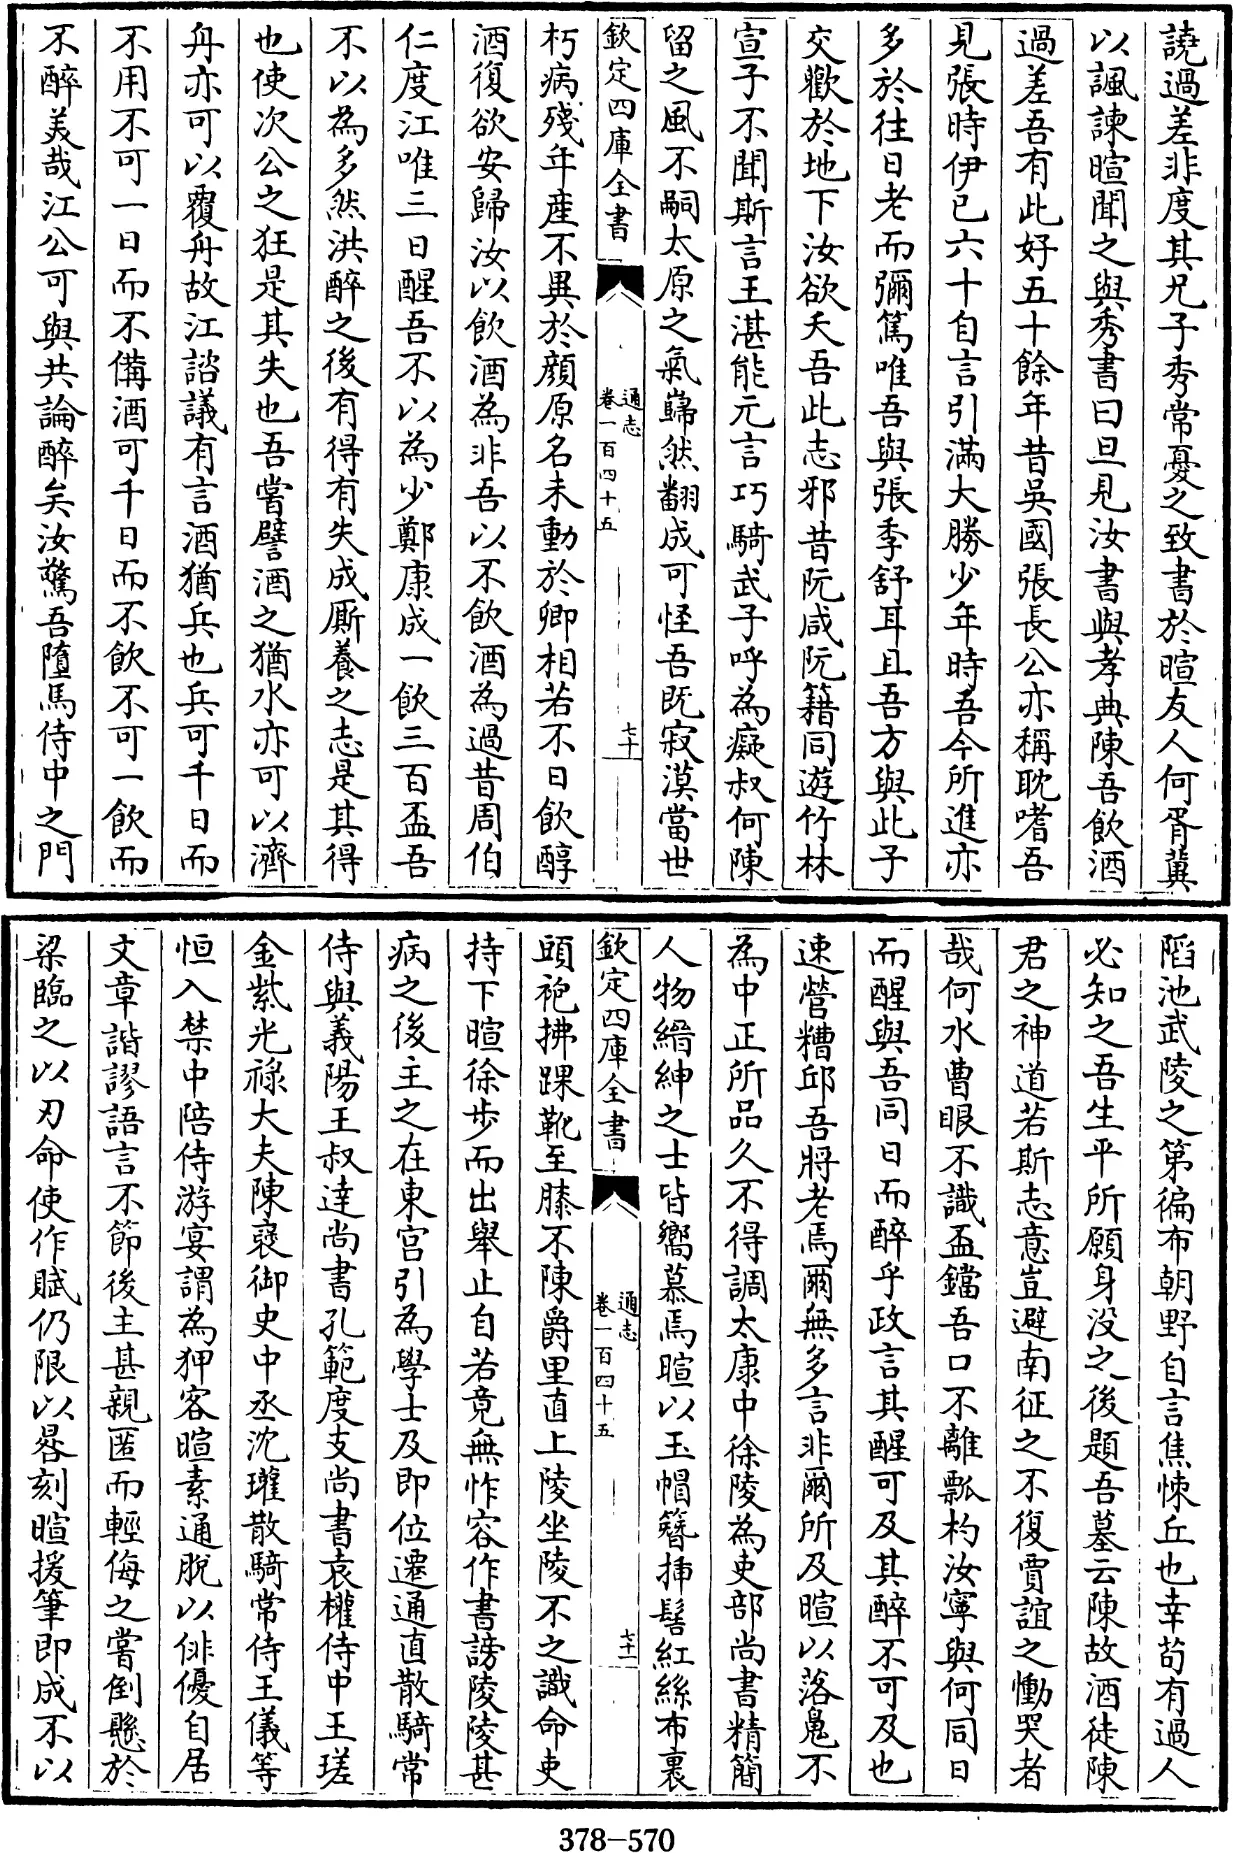 譊過差非度其兄子秀常憂之致書於暄友人何胥冀
以諷諫暄聞之與秀書曰旦見汝書與孝典陳吾飲酒
過差吾有此好五十餘年昔吳國張長公亦稱耽嗜吾
見張時伊已六十自言引滿大勝少年時吾今所進亦
多於往日老而彌篤唯吾與張季舒耳且吾方與此子
交歡於地下汝欲夭吾此志邪昔阮咸阮籍同遊竹林
宣子不聞斯言王湛能元言巧騎武子呼為癡叔何陳
留之風不嗣太原之氣巋然翻成可怪吾既寂漠當世
欽定四庫全書
通志
卷一百四十五
七十
朽病殘年產不異於顔原名未動於卿相若不日飲醇
酒復欲安歸汝以飲酒為非吾以不飲酒為過昔周伯
仁度江唯三日醒吾不以為少鄭康成一飲三百盃吾
不以為多然洪醉之後有得有失成厮養之志是其得
也使次公之狂是其失也吾嘗譬酒之猶水亦可以濟
舟亦可以覆舟故江諮議有言酒猶兵也兵可千日而
不用不可一日而不備酒可千日而不飲不可一飲而
不醉美哉江公可與共論醉矣汝驚吾墮馬侍中之門
陷池武陵之第徧布朝野自言焦悚丘也幸苟有過人
必知之吾生平所願身没之後題吾墓云陳故酒徒陳
君之神道若斯志意豈避南征之不復賈誼之慟哭者
哉何水曹眼不識盃鐺吾口不離瓢杓汝寧與何同日
而醒與吾同日而醉乎政言其醒可及其醉不可及也
速營糟邱吾將老焉爾無多言非爾所及暄以落魄不
為中正所品久不得調太康中徐陵為吏部尚書精簡
人物縉紳之士皆嚮慕焉暄以玉帽簪插髻紅絲布裹
欽定四庫全書
通志
卷一百四十五
七十一
頭袍拂踝靴至膝不陳爵里直上陵坐陵不之識命吏
持下暄徐步而出舉止自若竟無怍容作書謗陵陵甚
病之後主之在東宮引為學士及即位遷通直散騎常
侍與義陽王叔達尚書孔範度支尚書袁權侍中王瑳
金紫光祿大夫陳褒御史中丞沈瓘散騎常侍王儀等
恒入禁中陪侍游宴謂為狎客暄素通脫以俳優自居
文章諧謬語言不節後主甚親匿而輕侮之嘗倒懸於
梁臨之以刃命使作賦仍限以晷刻暄援筆即成不以
378-570